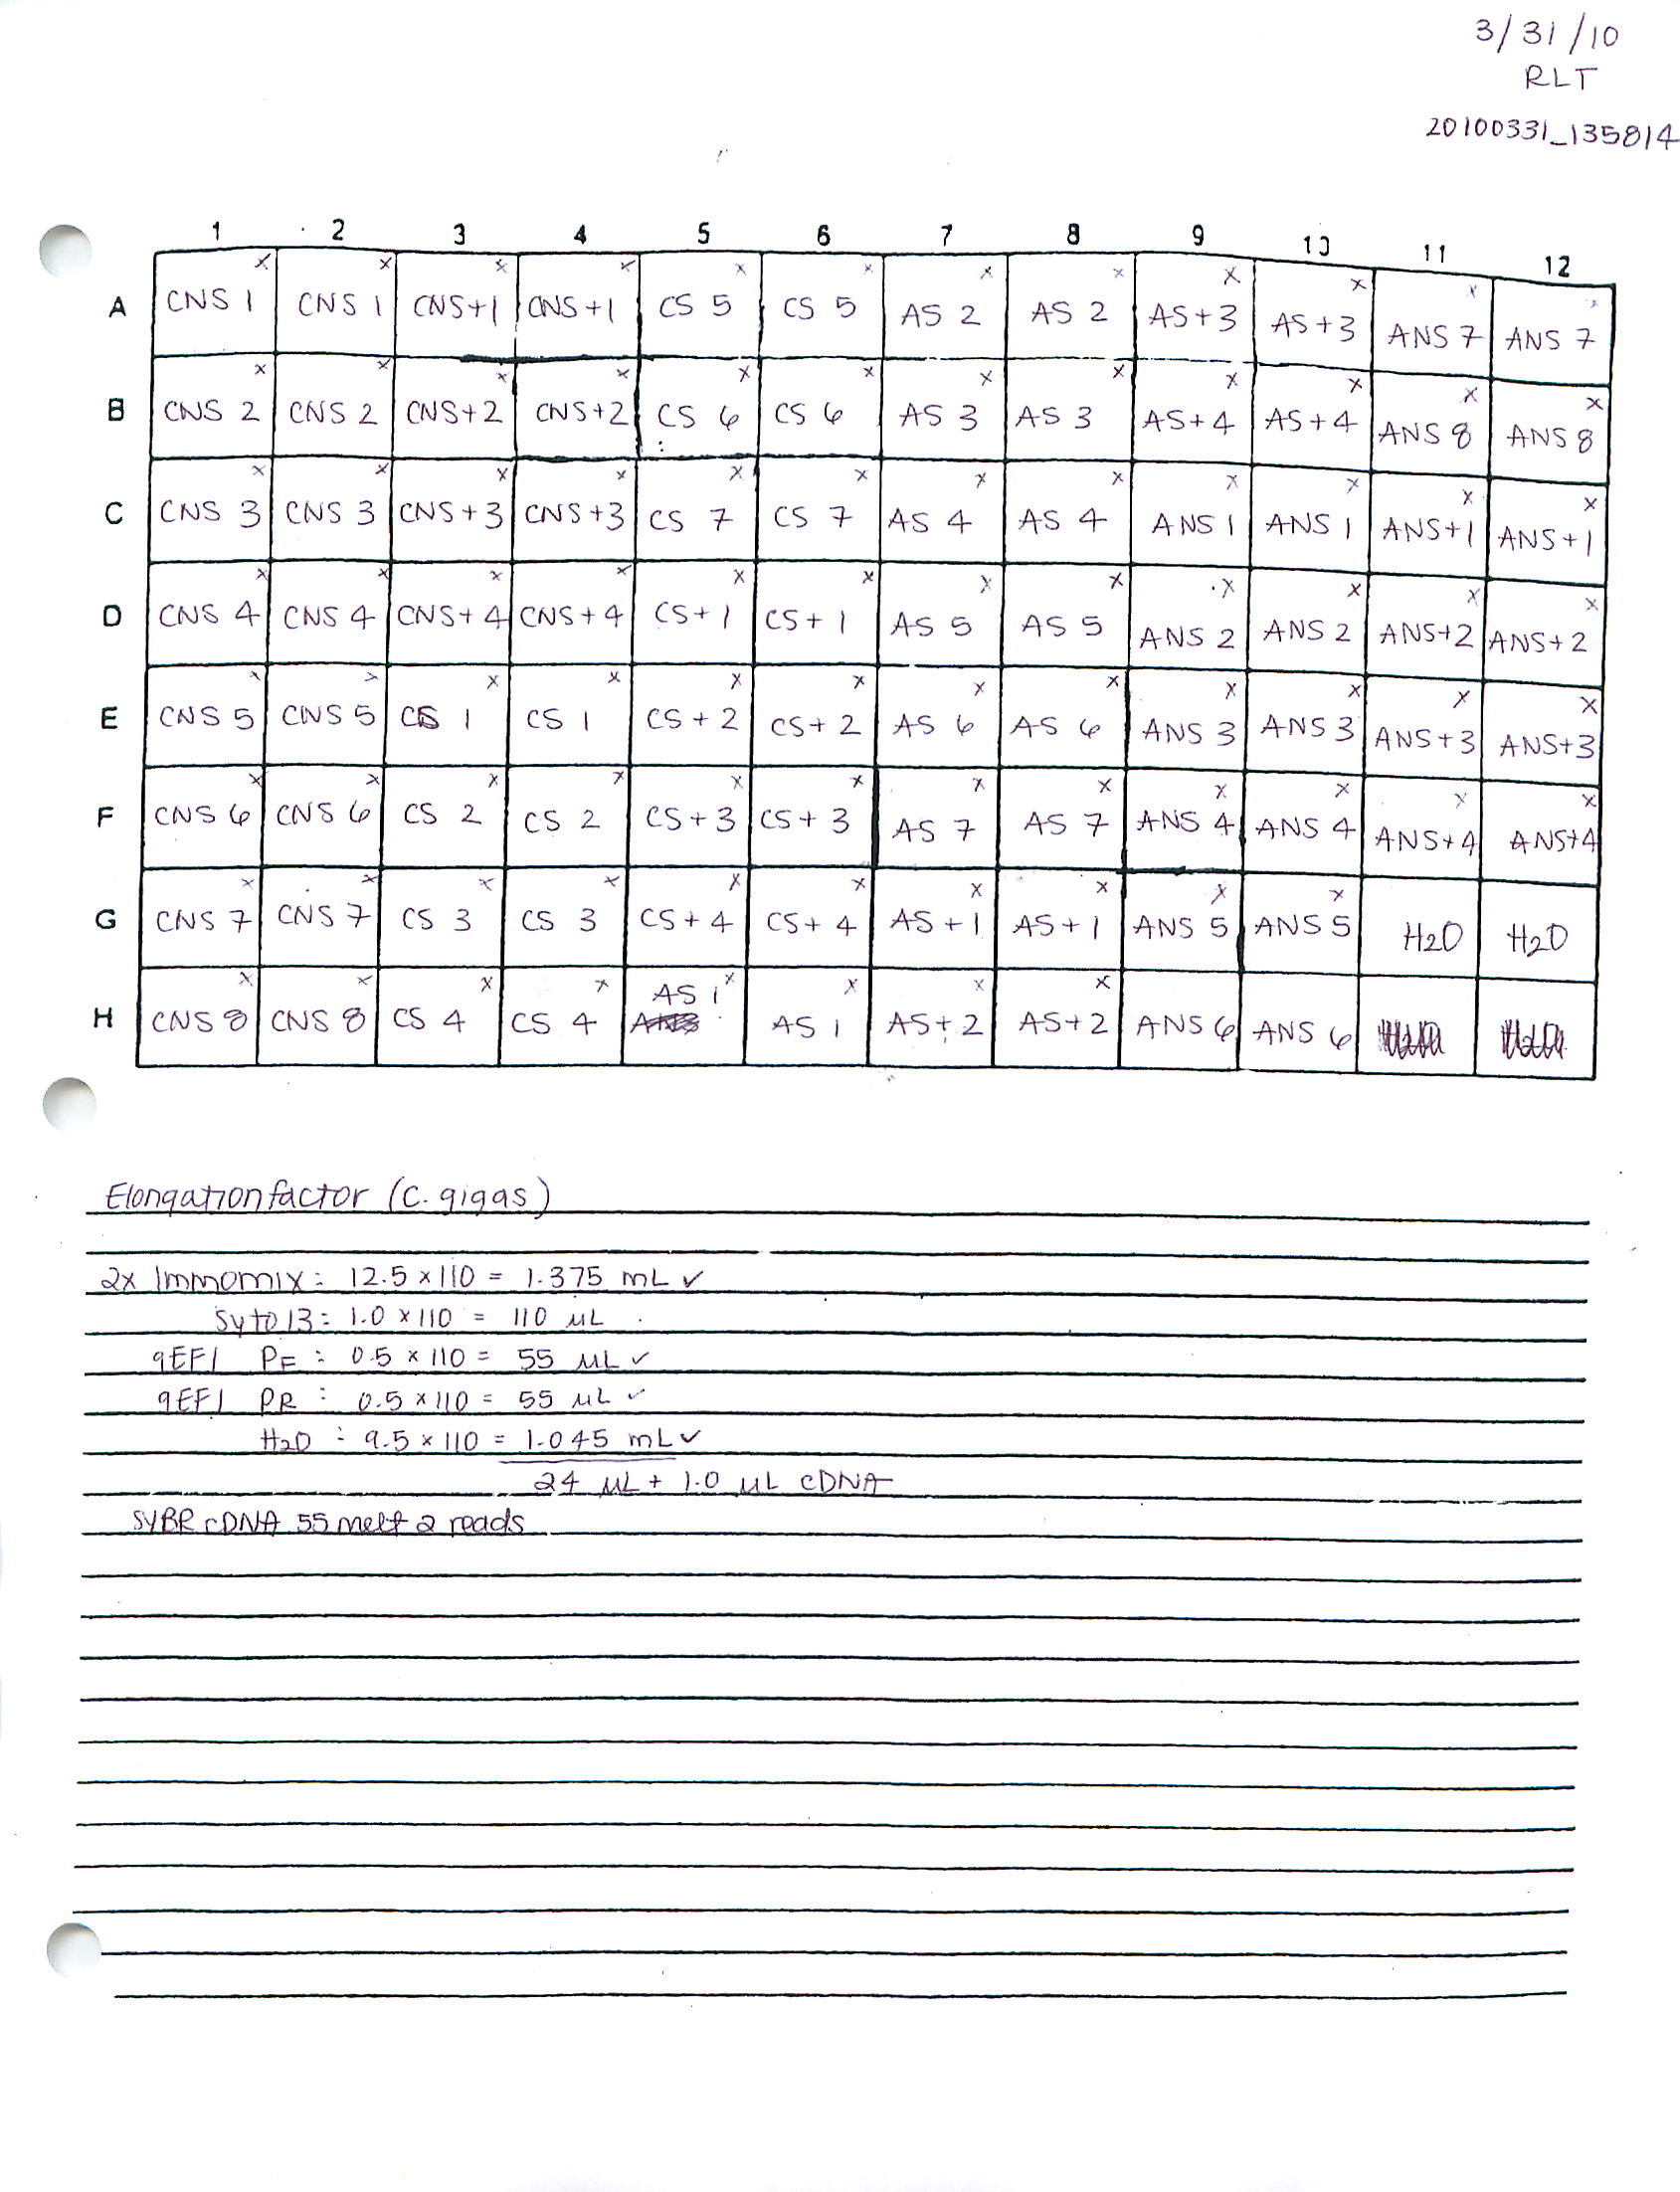 3/31/10
RLT
20100331_135814
1 2 3 4 5 6 7 8 9 10 11 12
A CNS 1 CNS 1 CNS+1 CNS+1 CS 5 CS 5 AS 2 AS 2 AS+3 AS+3 ANS 7 ANS 7
B CNS 2 CNS 2 CNS+2 CNS+2 CS 6 CS 6 AS 3 AS 3 AS+4 AS+4 ANS 8 ANS 8
C CNS 3 CNS 3 CNS+3 CNS+3 CS 7 CS 7 AS 4 AS 4 ANS 1 ANS 1 ANS+1 ANS+1
D CNS 4 CNS 4 CNS+4 CNS+4 CS+1 CS+1 AS 5 AS 5 ANS 2 ANS 2 ANS+2 ANS+2
E CNS 5 CNS 5 CS 1 CS 1 CS+2 CS+2 AS 6 AS 6 ANS 3 ANS 3 ANS+3 ANS+3
F CNS 6 CNS 6 CS 2 CS 2 CS+3 CS+3 AS 7 AS 7 ANS 4 ANS 4 ANS+4 ANS+4
G CNS 7 CNS 7 CS 3 CS 3 CS+4 CS+4 AS+1 AS+1 ANS 5 ANS 5 H2O H2O
H CNS 8 CNS 8 CS 4 CS 4 AS 1 AS 1 AS+2 AS+2 ANS 6 ANS 6
Elongation factor (C. gigas)
2x Immomix: 12.5 x 110 = 1.375 mL ✓
Syto 13: 1.0 x 110 = 110 µL
qEF1 PF: 0.5 x 110 = 55 µL ✓
qEF1 PR: 0.5 x 110 = 55 µL ✓
H2O: 9.5 x 110 = 1.045 mL ✓
24 µL + 1.0 µL cDNA
SYBR cDNA 55 melt 2 reads